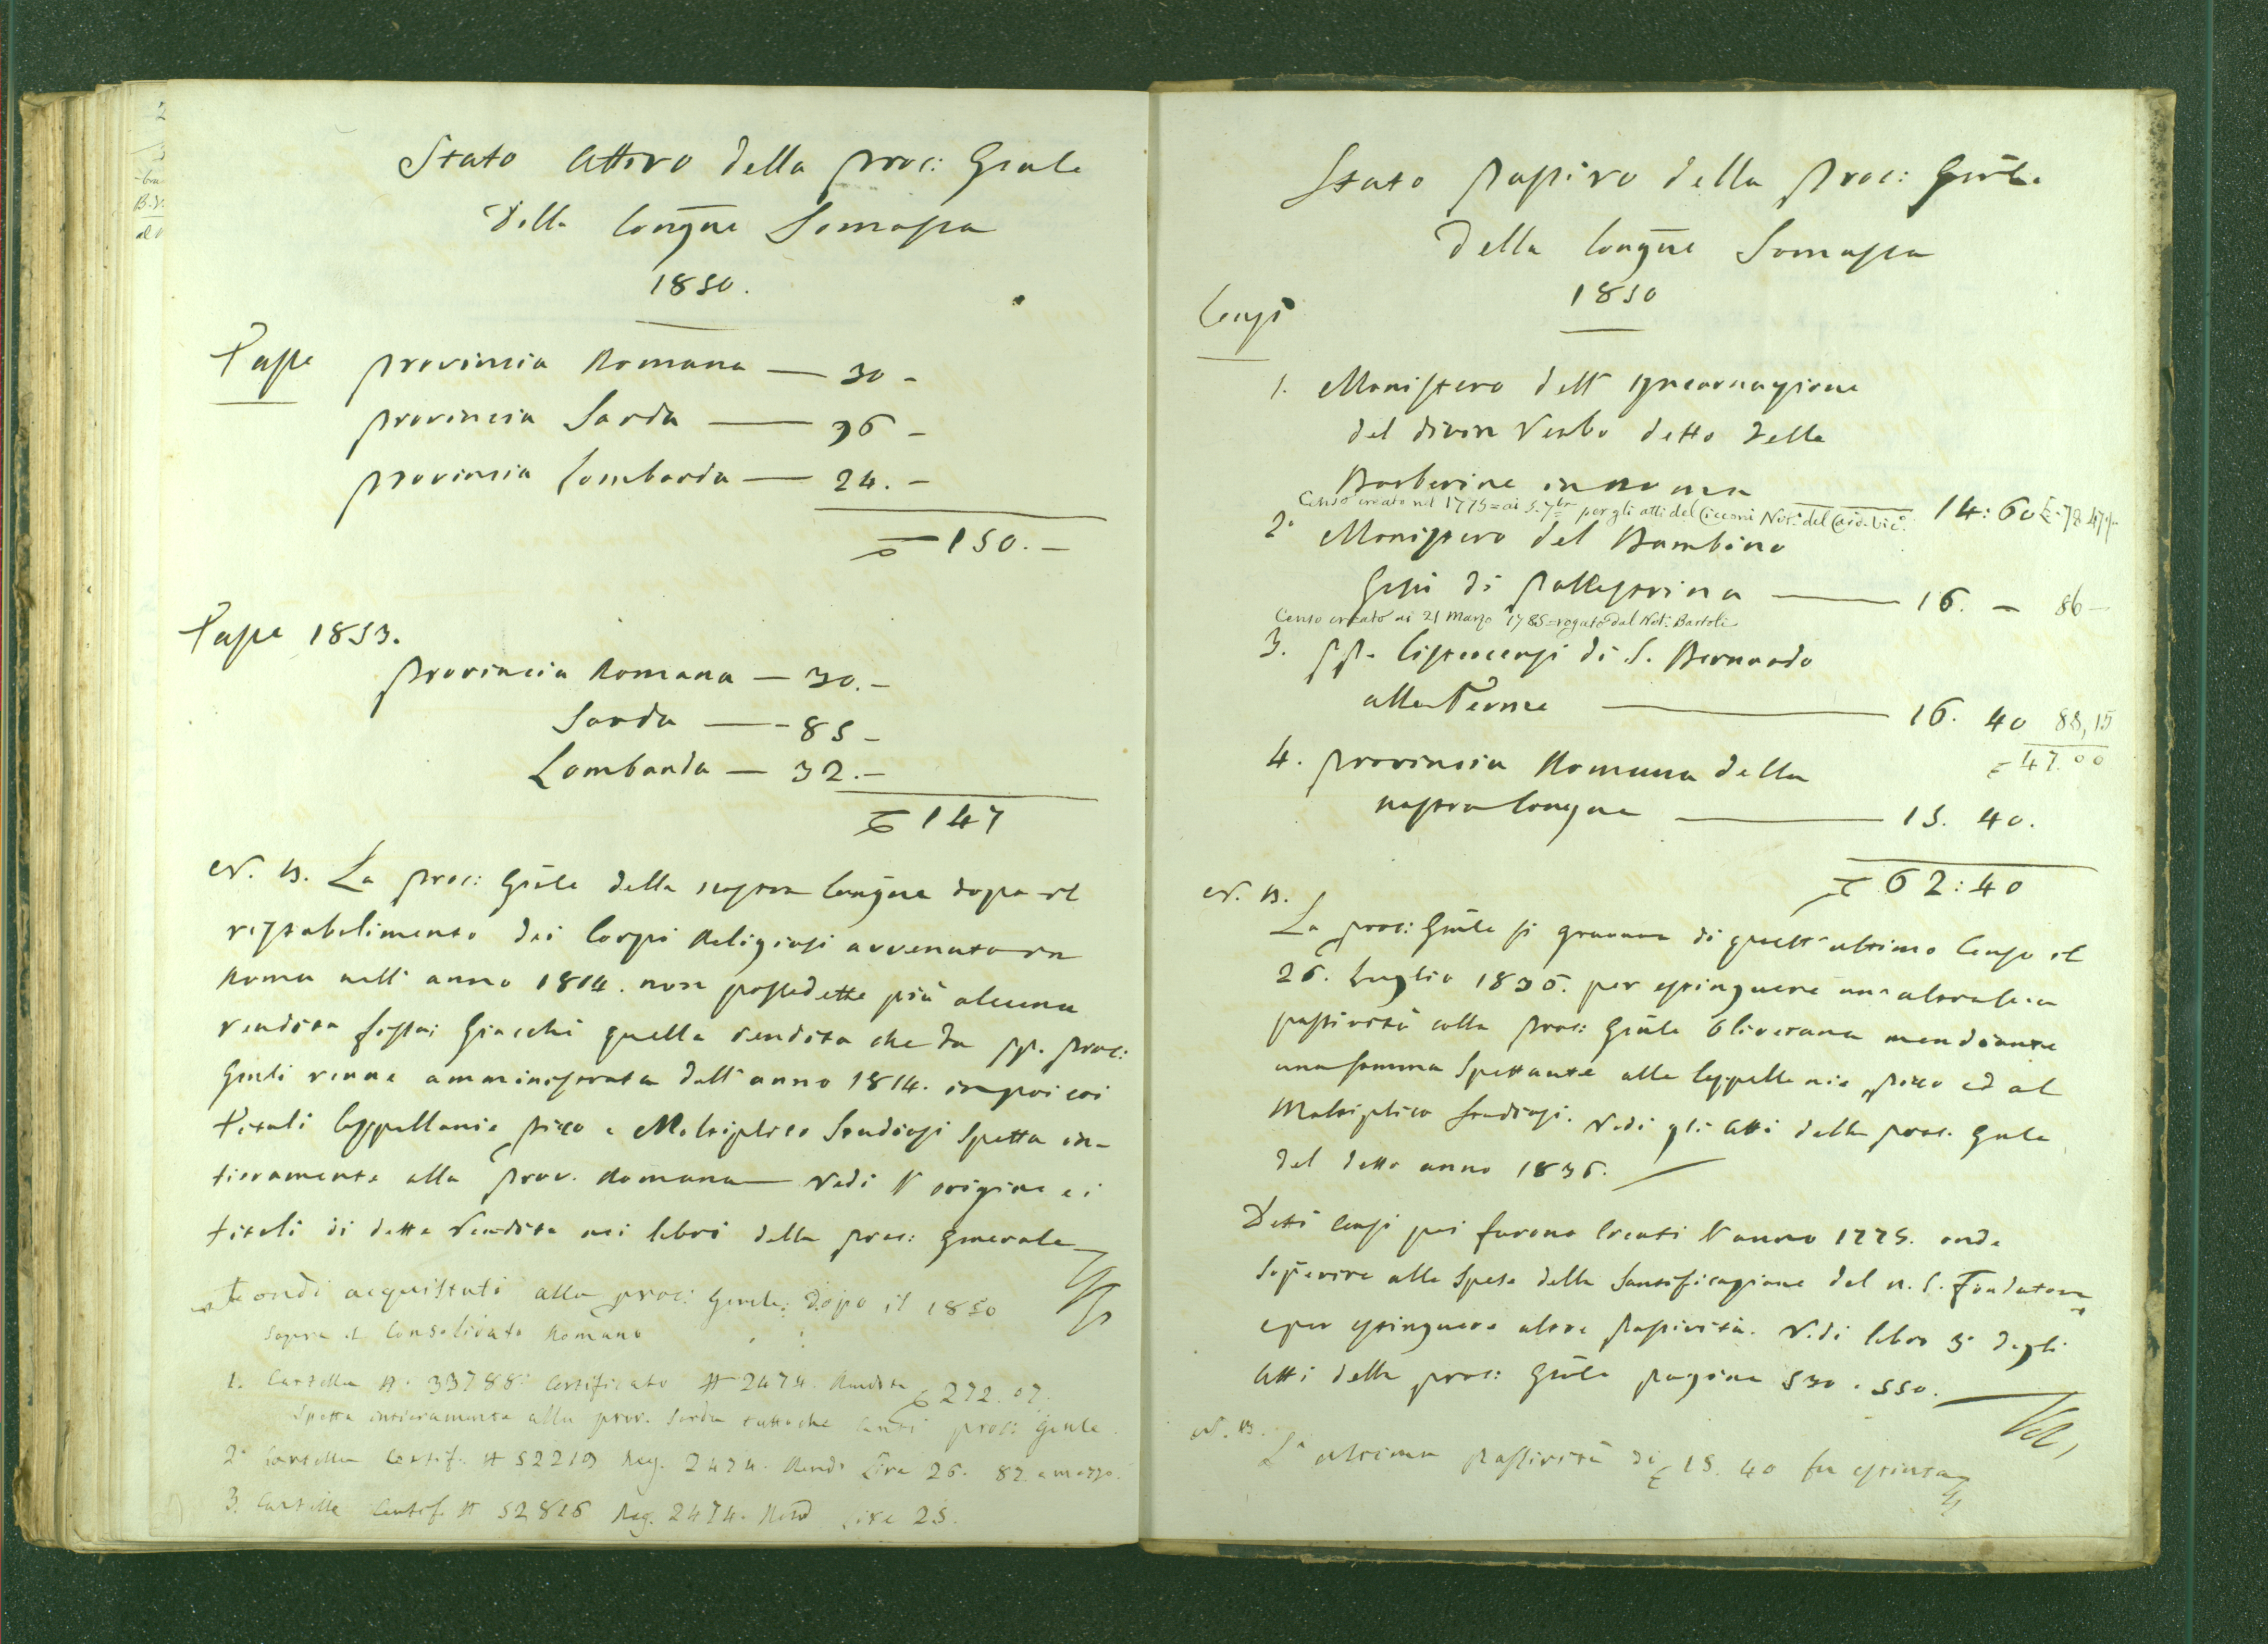 Stato Attivo della proc: Gnale
Della Congne Somasca
1850.
Tasse provincia Romana — 30 -
provincia Sarda — 96 -
provincia Lombarda — 24. -
150. -
Tasse 1853.
provincia Romana — 30. -
Sarda — 85 -
Lombarda — 32. -
147
N. B. La proc: Gnle della nostra Congne dopo il
ristabilimento dei Corpi Religiosi avvenuto in
Roma nell' anno 1814. non possedette più alcuna
rendita fissa; Giacchè quella rendita che da pp. proc:
Gnli venne amministrata dall' anno 1814. in poi coi
titoli Cappellanie Pixo e Moltiplico Studiosi spetta in-
tieramente alla prov. Romana Vedi l' origine e i
titoli di detta Rendita nei libri della proc: Generale
Fondi acquistati alla proc: Gnrle: dopo il 1850
sopra il Consolidato Romano
1. Cartella N. 33788: Certificato N 2474. Rendita 272. 07.
Spetta intieramente alla prov. Sarda tuttoche proc: Gnle.
2° Cartella Certif. N 52219 Reg. 2474. Rend. Lire 26. 82 e mezzo.
3. Cartella Certif. N 52826 Reg. 2474. Lire 25.
Stato Passivo della Proc: Gnle.
Della Congne Somasca
1850
Censi
1. Monistero dell' Incarnazione
del divin Verbo detto delle
Barberine in Roma 14: 60
Censo creato nel 1775 = ai 5. 7bre per gli atti del Cicconi Not. del
2° Monistero del Bambino
Gesù di Pallestrina — 16. — 86 —
Censo creato ai 21 Marzo 1785 = rogato dal Not: Bartoli
3. pp. Cistercensi di S. Bernardo
alle Terme — 16. 40 88,15
47.00
4. provincia Romana della
nostra Congne — 15. 40.
62: 40
N. B.
La proc: Gnle si gravava di quest' ultimo Censo il
26. Luglio 1836. per estinguere un altra sua
passività colla proc: Gnle Oliverana mendiante
una somma Spettante alle Cappellanie Pixo ed al
Moltiplico Studiosi. Vedi gli Atti della proc. Gnle
del detto anno 1836.
Detti Censi poi furono Creati l' anno 1775. onde
Sopperire alle Spese della Santificazione del n. S. Fondatore
e per estinguere altre Passività. Vedi libro 3° degli
Atti della proc: Gnle pagine 530. 550.
N. B.
L' ultima Passività di 15. 40 fu estinta